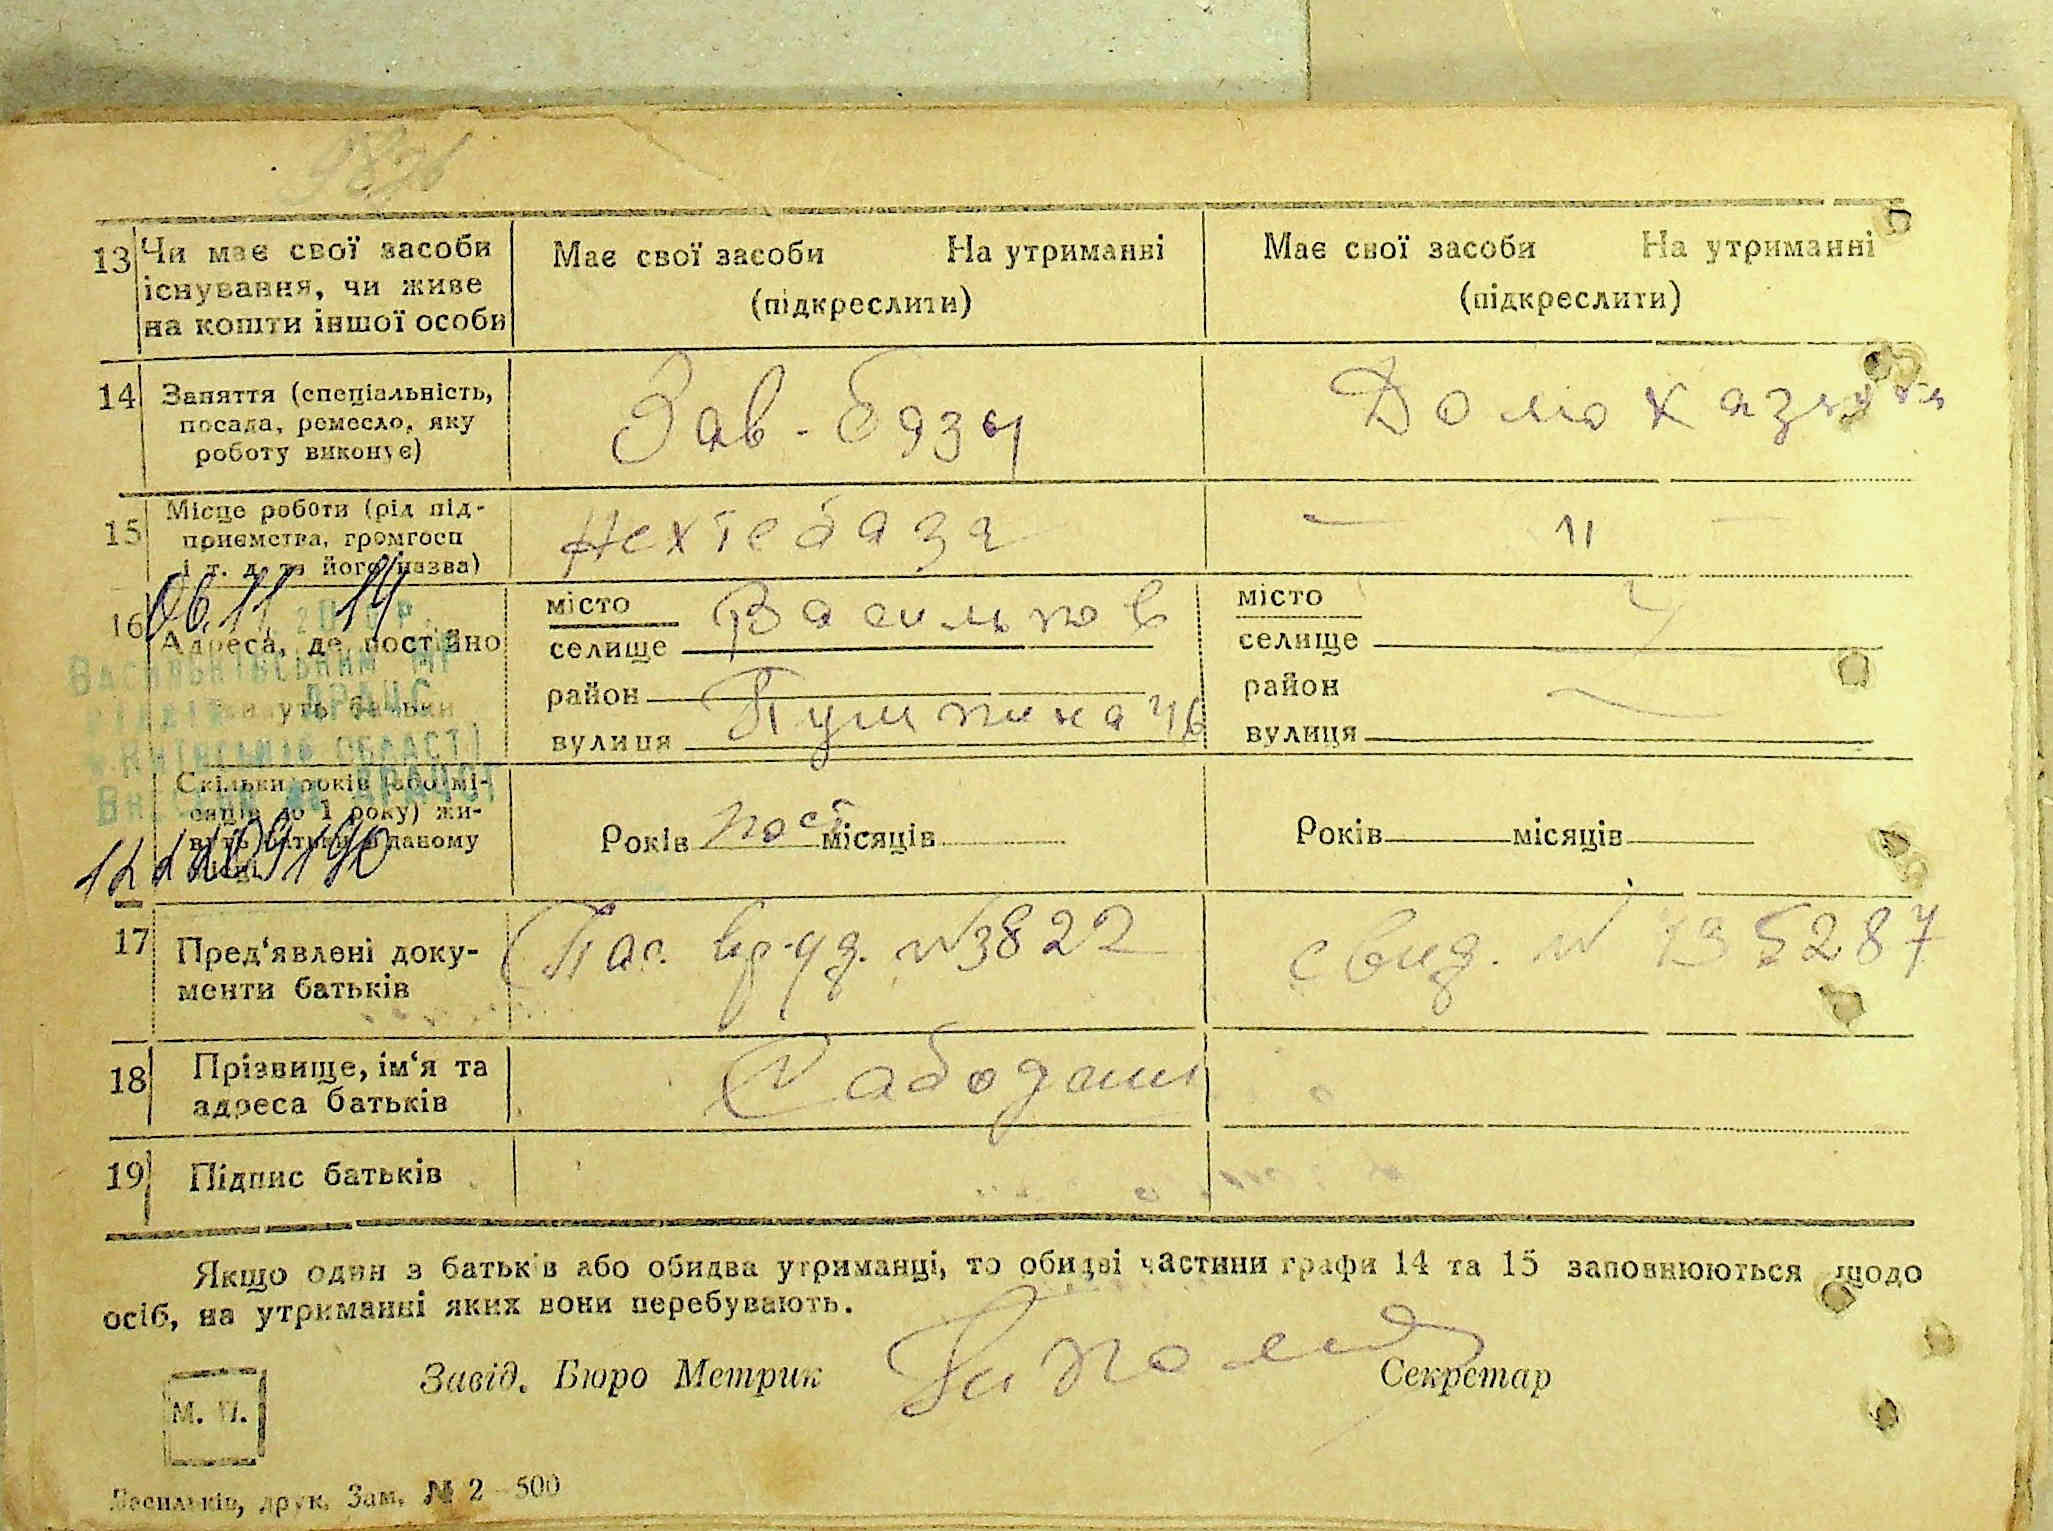 982
13 Чи має свої засоби існування, чи живе на кошти іншої особи
Має свої засоби На утриманні
(підкреслити)
Має свої засоби На утриманні
(підкреслити)
14 Заняття (спеціальність,
посада, ремесло, яку
роботу виконує)
Зав-базы
Домохаз
15 Місце роботи (рід під-
приємства, громгосп
і т. д. та його назва)
Нехтебаза
— 11 —
16 Адреса, де постійно
живуть батьки
місто Васильков
селище
район
вулиця Пушкина 46
місто
селище
район
вулиця
06.11 2014 р.
Васильківським МР
відділ ДРАЦС
Київській області
Скільки років (або мі-
сяців до 1 року) жи-
вуть батьки в даному
місці
Років пост місяців
Років місяців
17 Пред'явлені доку-
менти батьків
Пас. вр-уд. №3822
свид. № 735287
18 Прізвище, ім'я та
адреса батьків
19 Підпис батьків
Якщо один з батьків або обидва утриманці, то обидві частини графи 14 та 15 заповнюються щодо
осіб, на утриманні яких вони перебувають.
Завід. Бюро Метрик
Секретар
М. П.
Васильків, друк. Зам. № 2—500